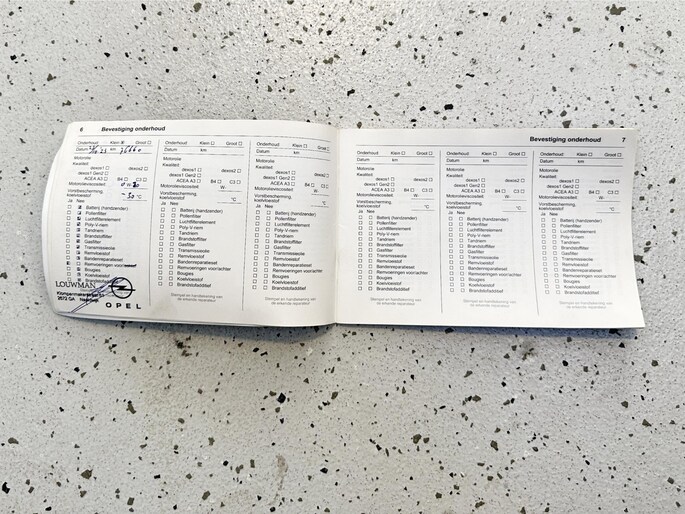 6 Bevestiging onderhoud
Onderhoud: Klein ☒ Groot ☐
Datum km
Motorolie
Kwaliteit: dexos2 ☐
dexos1 ☐
dexos1 Gen2 ☐
ACEA A3 ☐ B4 ☐ C3 ☐
Motorolieviscositeit: 0 W-
Vorstbescherming
koelvloeistof -30 °C
Ja Nee
Batterij (handzender)
Pollenfilter
Luchtfilterelement
Poly-V-riem
Tandriem
Brandstoffilter
Gasfilter
Transmissieolie
Remvloeistof
Bandenreparatieset
Remvoeringen voor/achter
Bougies
Koelvloeistof
Brandstofadditief
LOUWMAN
OPEL
Onderhoud: Klein ☐ Groot ☐
Datum km
Motorolie
Kwaliteit: dexos2 ☐
dexos1 ☐
dexos1 Gen2 ☐
ACEA A3 ☐ B4 ☐ C3 ☐
Motorolieviscositeit: W-
Vorstbescherming
koelvloeistof °C
Ja Nee
☐ ☐ Batterij (handzender)
☐ ☐ Pollenfilter
☐ ☐ Luchtfilterelement
☐ ☐ Poly-V-riem
☐ ☐ Tandriem
☐ ☐ Brandstoffilter
☐ ☐ Gasfilter
☐ ☐ Transmissieolie
☐ ☐ Remvloeistof
☐ ☐ Bandenreparatieset
☐ ☐ Remvoeringen voor/achter
☐ ☐ Bougies
☐ ☐ Koelvloeistof
☐ ☐ Brandstofadditief
Stempel en handtekening van
de erkende reparateur
Onderhoud: Klein ☐ Groot ☐
Datum km
Motorolie
Kwaliteit: dexos2 ☐
dexos1 ☐
dexos1 Gen2 ☐
ACEA A3 ☐ B4 ☐ C3 ☐
Motorolieviscositeit: W-
Vorstbescherming
koelvloeistof °C
Ja Nee
☐ ☐ Batterij (handzender)
☐ ☐ Pollenfilter
☐ ☐ Luchtfilterelement
☐ ☐ Poly-V-riem
☐ ☐ Tandriem
☐ ☐ Brandstoffilter
☐ ☐ Gasfilter
☐ ☐ Transmissieolie
☐ ☐ Remvloeistof
☐ ☐ Bandenreparatieset
☐ ☐ Remvoeringen voor/achter
☐ ☐ Bougies
☐ ☐ Koelvloeistof
☐ ☐ Brandstofadditief
Stempel en handtekening van
de erkende reparateur
Bevestiging onderhoud 7
Onderhoud: Klein ☐ Groot ☐
Datum km
Motorolie
Kwaliteit: dexos2 ☐
dexos1 ☐
dexos1 Gen2 ☐
ACEA A3 ☐ B4 ☐ C3 ☐
Motorolieviscositeit: W-
Vorstbescherming
koelvloeistof °C
Ja Nee
☐ ☐ Batterij (handzender)
☐ ☐ Pollenfilter
☐ ☐ Luchtfilterelement
☐ ☐ Poly-V-riem
☐ ☐ Tandriem
☐ ☐ Brandstoffilter
☐ ☐ Gasfilter
☐ ☐ Transmissieolie
☐ ☐ Remvloeistof
☐ ☐ Bandenreparatieset
☐ ☐ Remvoeringen voor/achter
☐ ☐ Bougies
☐ ☐ Koelvloeistof
☐ ☐ Brandstofadditief
Stempel en handtekening van
de erkende reparateur
Onderhoud: Klein ☐ Groot ☐
Datum km
Motorolie
Kwaliteit: dexos2 ☐
dexos1 ☐
dexos1 Gen2 ☐
ACEA A3 ☐ B4 ☐ C3 ☐
Motorolieviscositeit: W-
Vorstbescherming
koelvloeistof °C
Ja Nee
☐ ☐ Batterij (handzender)
☐ ☐ Pollenfilter
☐ ☐ Luchtfilterelement
☐ ☐ Poly-V-riem
☐ ☐ Tandriem
☐ ☐ Brandstoffilter
☐ ☐ Gasfilter
☐ ☐ Transmissieolie
☐ ☐ Remvloeistof
☐ ☐ Bandenreparatieset
☐ ☐ Remvoeringen voor/achter
☐ ☐ Bougies
☐ ☐ Koelvloeistof
☐ ☐ Brandstofadditief
Stempel en handtekening van
de erkende reparateur
Onderhoud: Klein ☐ Groot ☐
Datum km
Motorolie
Kwaliteit: dexos2 ☐
dexos1 ☐
dexos1 Gen2 ☐
ACEA A3 ☐ B4 ☐ C3 ☐
Motorolieviscositeit: W-
Vorstbescherming
koelvloeistof °C
Ja Nee
☐ ☐ Batterij (handzender)
☐ ☐ Pollenfilter
☐ ☐ Luchtfilterelement
☐ ☐ Poly-V-riem
☐ ☐ Tandriem
☐ ☐ Brandstoffilter
☐ ☐ Gasfilter
☐ ☐ Transmissieolie
☐ ☐ Remvloeistof
☐ ☐ Bandenreparatieset
☐ ☐ Remvoeringen voor/achter
☐ ☐ Bougies
☐ ☐ Koelvloeistof
☐ ☐ Brandstofadditief
Stempel en handtekening van
de erkende reparateur